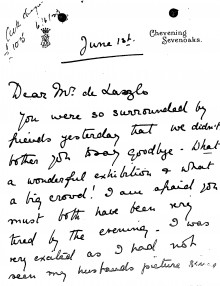 Chevening
Sevenoaks.
June 1st.
Dear Mr de Laszlo
You were so surrounded by
friends yesterday that we didn't
bother you to say goodbye. What
a wonderful exhibition & what
a big crowd! I am afraid you
must both have been very
tired by the evening. I was
very excited as I had not
seen my husband's picture